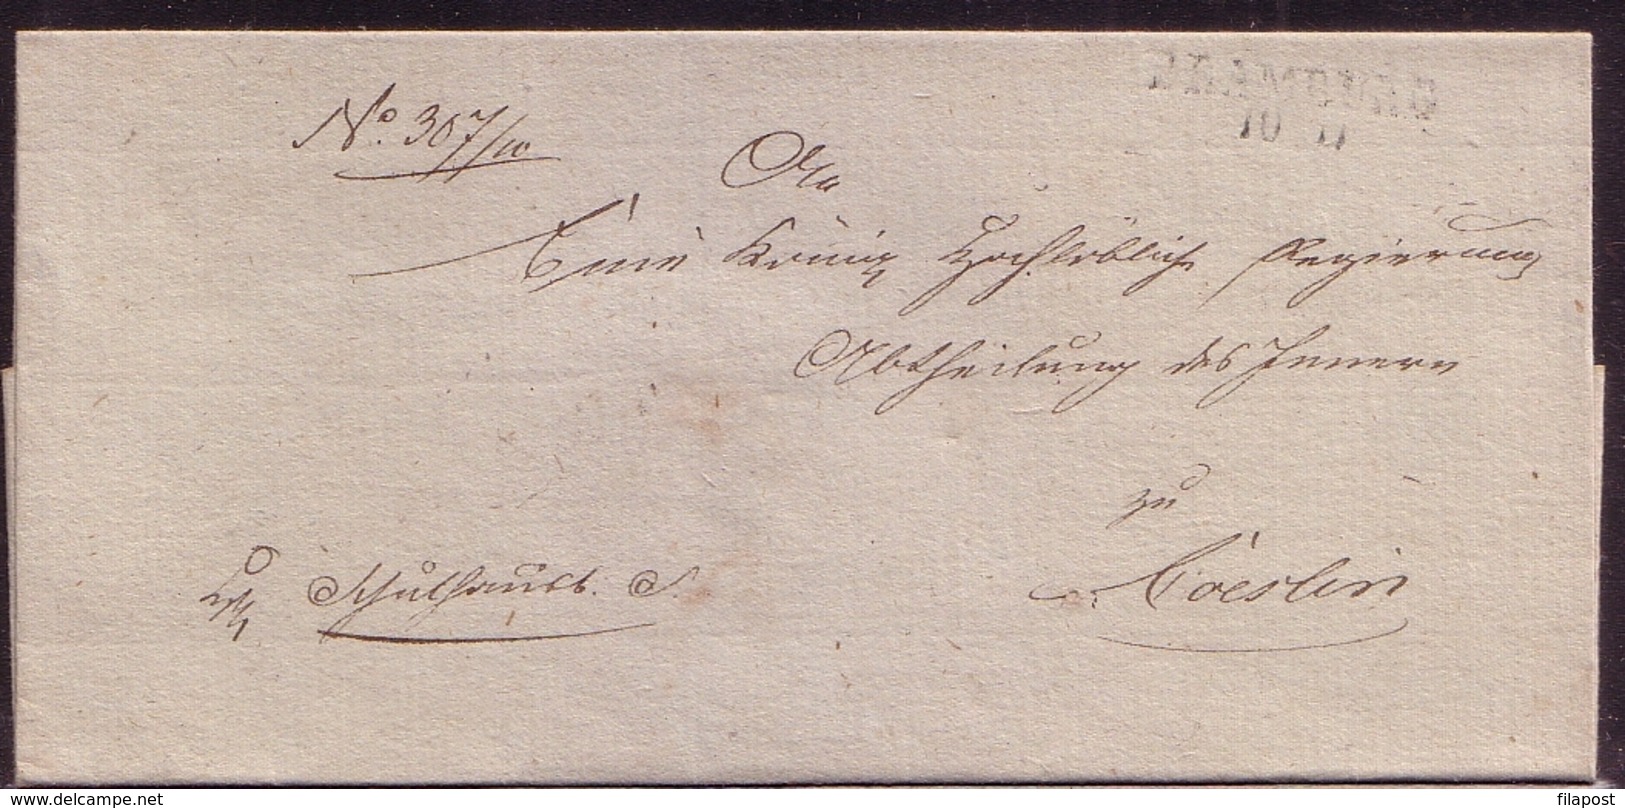 DRAMBURG
10 11
No. 307/10
An
Eine Königl Hochlöbliche Regierung
Abtheilung des Innern
zu
Coeslin
Schulhausb. S.
www.delcampe.net
filapost